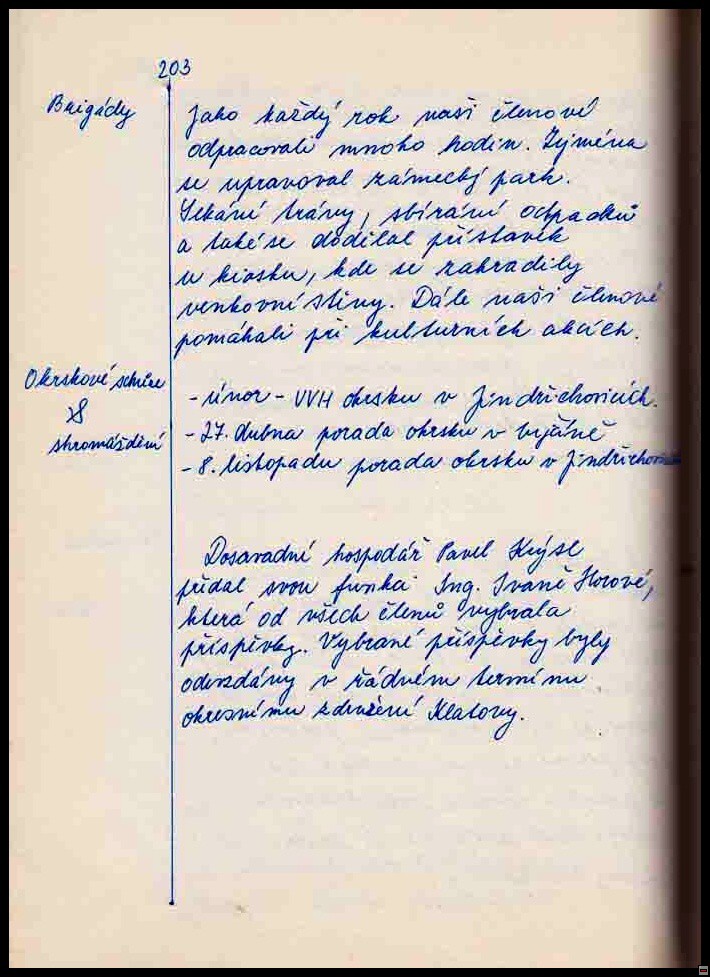 203
Brigády
Jako každý rok naši členové
odpracovali mnoho hodin. Zejména
se upravoval zámecký park.
Sekání trávy, sbírání odpadků
a také se dodělal přístavek
u kiosku, kde se zahradily
venkovní stěny. Dále naši členové
pomáhali při kulturních akcích.
Okrskové schůze
&
shromáždění
- únor - VVH okrsku v Jindřichovicích.
- 27. dubna porada okrsku v
- 8. listopadu porada okrsku v
Dosavadní hospodář Pavel
předal svou funkci Ing. Ivaně Horové,
která od všech členů vybrala
příspěvky. Vybrané příspěvky byly
odevzdány v řádném termínu
okresnímu sdružení Klatovy.